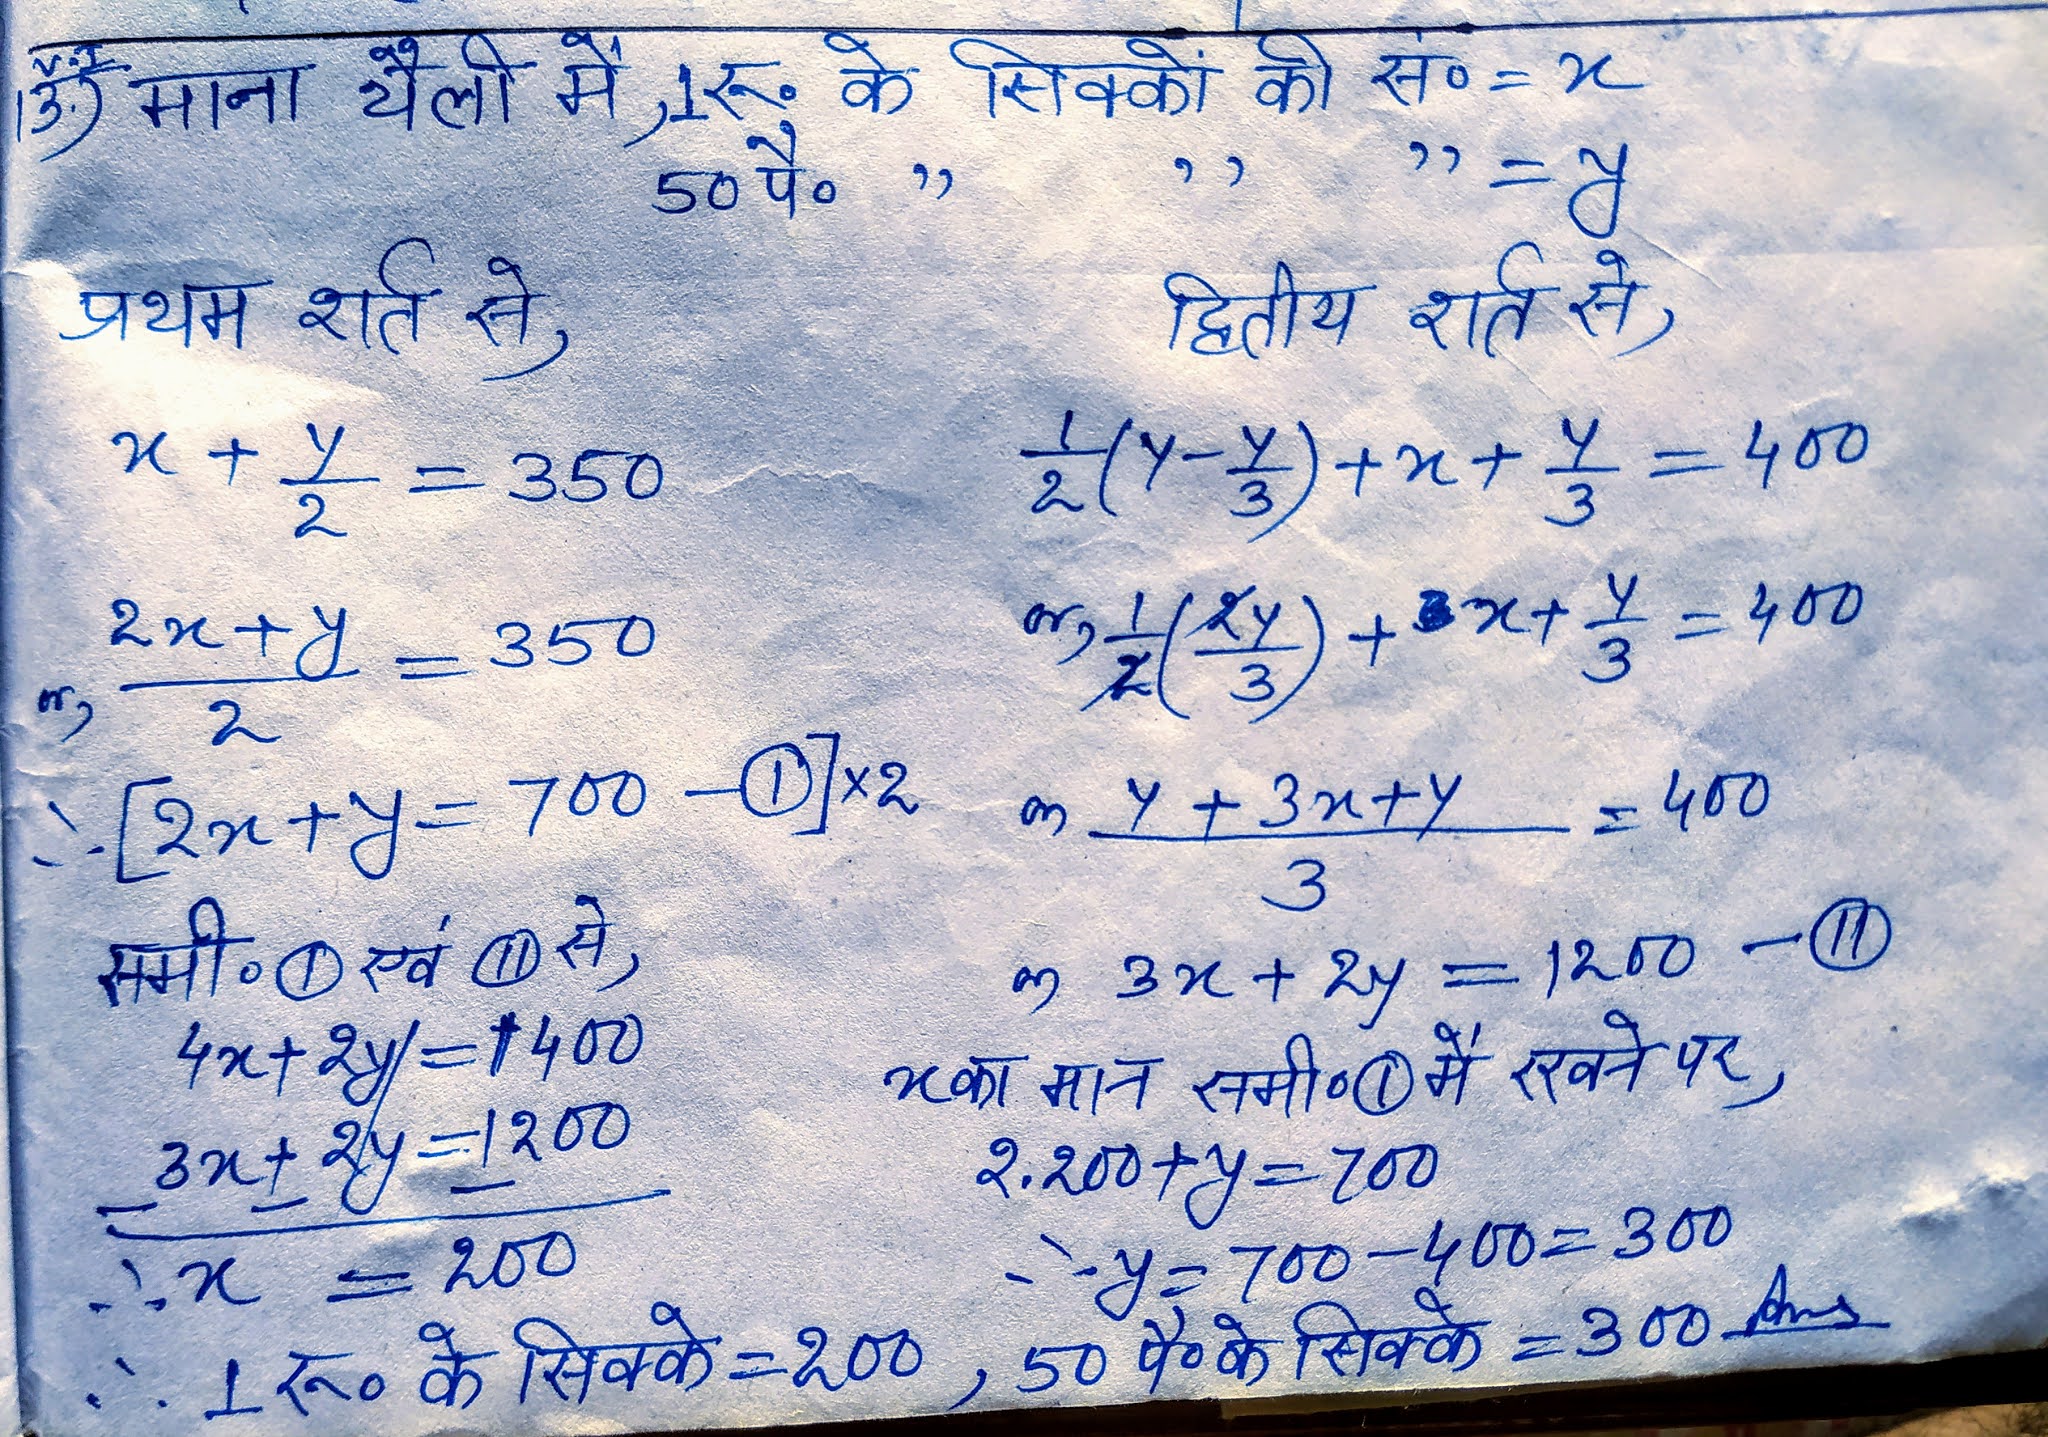 13.) माना थैली में, 1रू० के सिक्कों की सं० = x
50पै० " " " = y
प्रथम शर्त से,
x + y/2 = 350
or, (2x+y)/2 = 350
∴ [2x+y = 700 —(I)]×2
समी० (I) एवं (II) से,
4x+2y = 1400
3x+2y = 1200
- - -
∴ x = 200
द्वितीय शर्त से,
1/2(y-y/3)+x+y/3 = 400
or, 1/2(2y/3)+x+y/3 = 400
or (y+3x+y)/3 = 400
or 3x+2y = 1200 —(II)
x का मान समी० (I) में रखने पर,
2.200+y = 700
∴ y = 700-400 = 300
∴ 1 रू० के सिक्के = 200, 50 पै० के सिक्के = 300 Ans